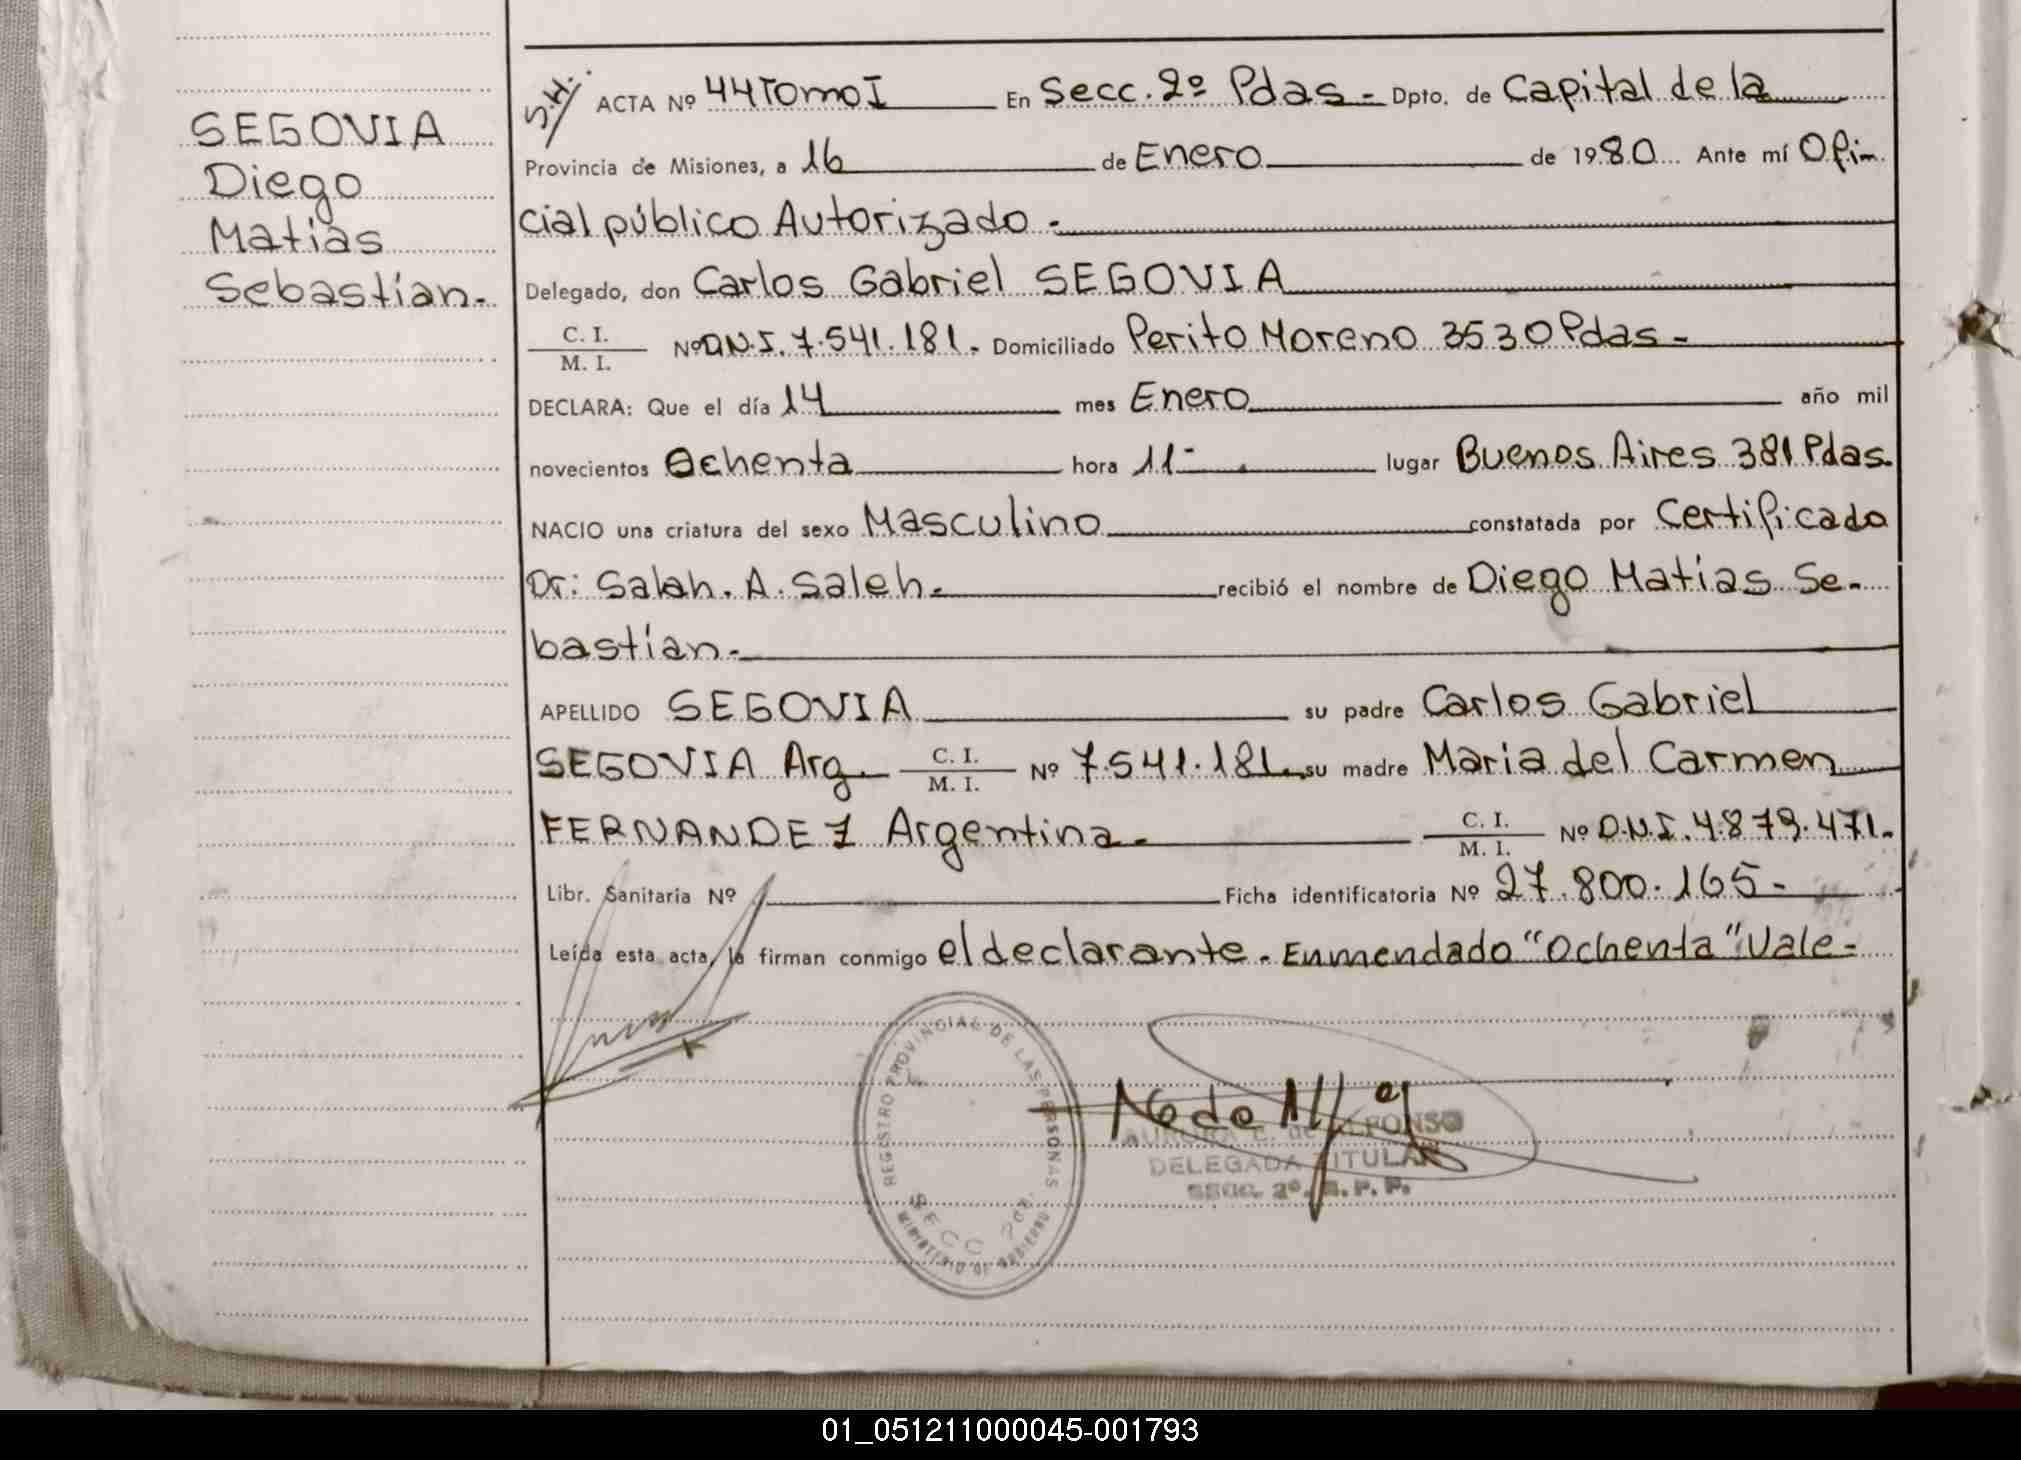 SEGOVIA
Diego
Matias
Sebastían.
S.H. ACTA Nº 44 Tomo I En Secc. 2º Pdas - Dpto. de Capital de la
Provincia de Misiones, a 16 de Enero de 1980 Ante mí Ofi-
cial público Autorizado -
Delegado, don Carlos Gabriel SEGOVIA
C. I.
M. I.
Nº D.N.I. 7.541.181. Domiciliado Perito Moreno 3530 Pdas -
DECLARA: Que el día 14 mes Enero año mil
novecientos Ochenta hora 11- lugar Buenos Aires 381 Pdas.
NACIO una criatura del sexo Masculino constatada por Certificado
Dr: Salah. A. Saleh. recibió el nombre de Diego Matias Se-
bastían.
APELLIDO SEGOVIA su padre Carlos Gabriel
SEGOVIA Arg. C. I. / M. I. Nº 7.541.181. su madre Maria del Carmen
FERNANDEZ Argentina. C. I. / M. I. Nº D.N.I. 4.879.471.
Libr. Sanitaria Nº Ficha identificatoria Nº 27.800.165-
Leída esta acta, la firman conmigo el declarante. Enmendado "Ochenta" Vale-
REGISTRO PROVINCIAL DE LAS PERSONAS
SECC 2da
MINISTERIO DE GOBIERNO
AURORA E. de ALFONSO
DELEGADA TITULAR
SECC. 2º. R. P. P.
01_051211000045-001793